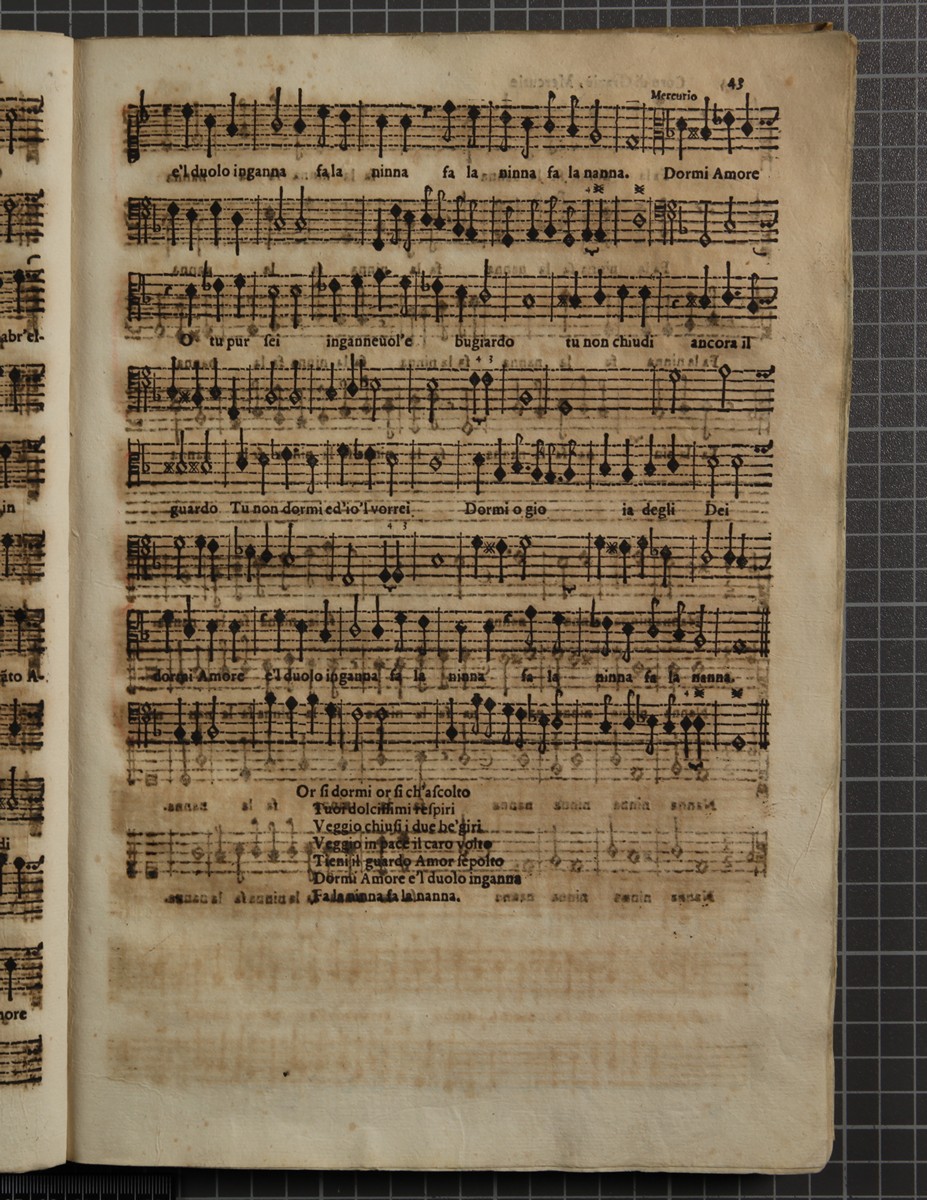 43
Mercurio
e'l duolo inganna fa la ninna fa la ninna fa la nanna. Dormi Amore
O tu pur ſei inganneuol'e bugiardo tu non chiudi ancora il
4 3
guardo Tu non dormi ed'io'l vorrei Dormi o gio ia degli Dei
4 3
dormi Amore e'l duolo inganna fa la ninna fa la ninna fa la nanna.
4
Or ſi dormi or ſi ch'aſcolto
Tuoi dolciſſimi reſpiri
Veggio chiuſi i due be'giri
Veggio in pace il caro volto
Tieni il guardo Amor ſepolto
Dormi Amore e'l duolo inganna
Fa la ninna fa la nanna.
abr'el-
in
di
nore